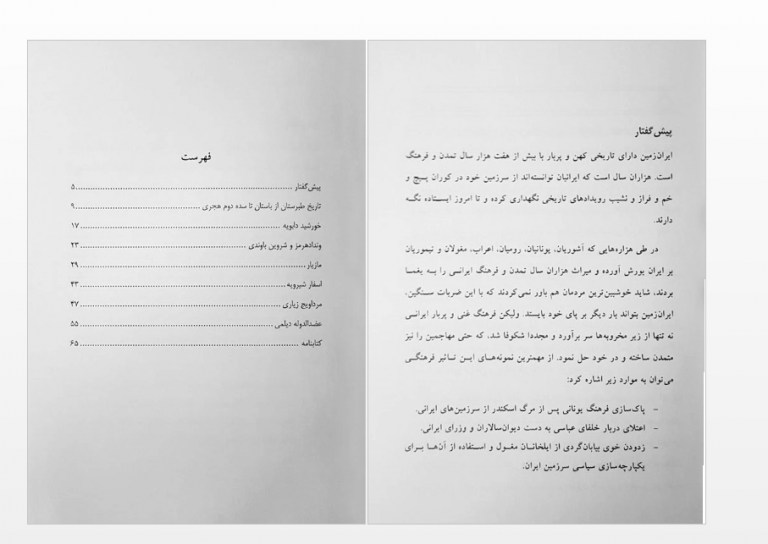 فهرست
پیش‌گفتار ..... ۵
تاریخ طبرستان از باستان تا سده دوم هجری ..... ۹
خورشید دابویه ..... ۱۷
ونداد‌هرمز و شروین باوندی ..... ۲۳
مازیار ..... ۲۹
اسفار شیرویه ..... ۴۳
مرداویج زیاری ..... ۴۷
عضدالدوله دیلمی ..... ۵۵
کتابنامه ..... ۶۵
پیش‌گفتار
ایران‌زمین دارای تاریخی کهن و پربار با بیش از هفت هزار سال تمدن و فرهنگ
است. هزاران سال است که ایرانیان توانسته‌اند از سرزمین خود در کوران پیچ و
خم و فراز و نشیب رویدادهای تاریخی نگهداری کرده و تا امروز ایستاده نگه
دارند.
در طی هزاره‌هایی که آشوریان، یونانیان، رومیان، اعراب، مغولان و تیموریان
بر ایران یورش آورده و میراث هزاران سال تمدن و فرهنگ ایرانی را به یغما
بردند، شاید خوشبین‌ترین مردمان هم باور نمی‌کردند که با این ضربات سنگین،
ایران‌زمین بتواند بار دیگر بر پای خود بایستد. ولیکن فرهنگ غنی و پربار ایرانی
نه تنها از زیر مخروبه‌ها سر برآورد و مجددا شکوفا شد، که حتی مهاجمین را نیز
متمدن ساخته و در خود حل نمود. از مهمترین نمونه‌های این تاثیر فرهنگی
می‌توان به موارد زیر اشاره کرد:
- پاک‌سازی فرهنگ یونانی پس از مرگ اسکندر از سرزمین‌های ایرانی.
- اعتلای دربار خلفای عباسی به دست دیوان‌سالاران و وزرای ایرانی.
- زدودن خوی بیابان‌گردی از ایلخانان مغول و استفاده از آن‌ها برای
یکپارچه‌سازی سیاسی سرزمین ایران.